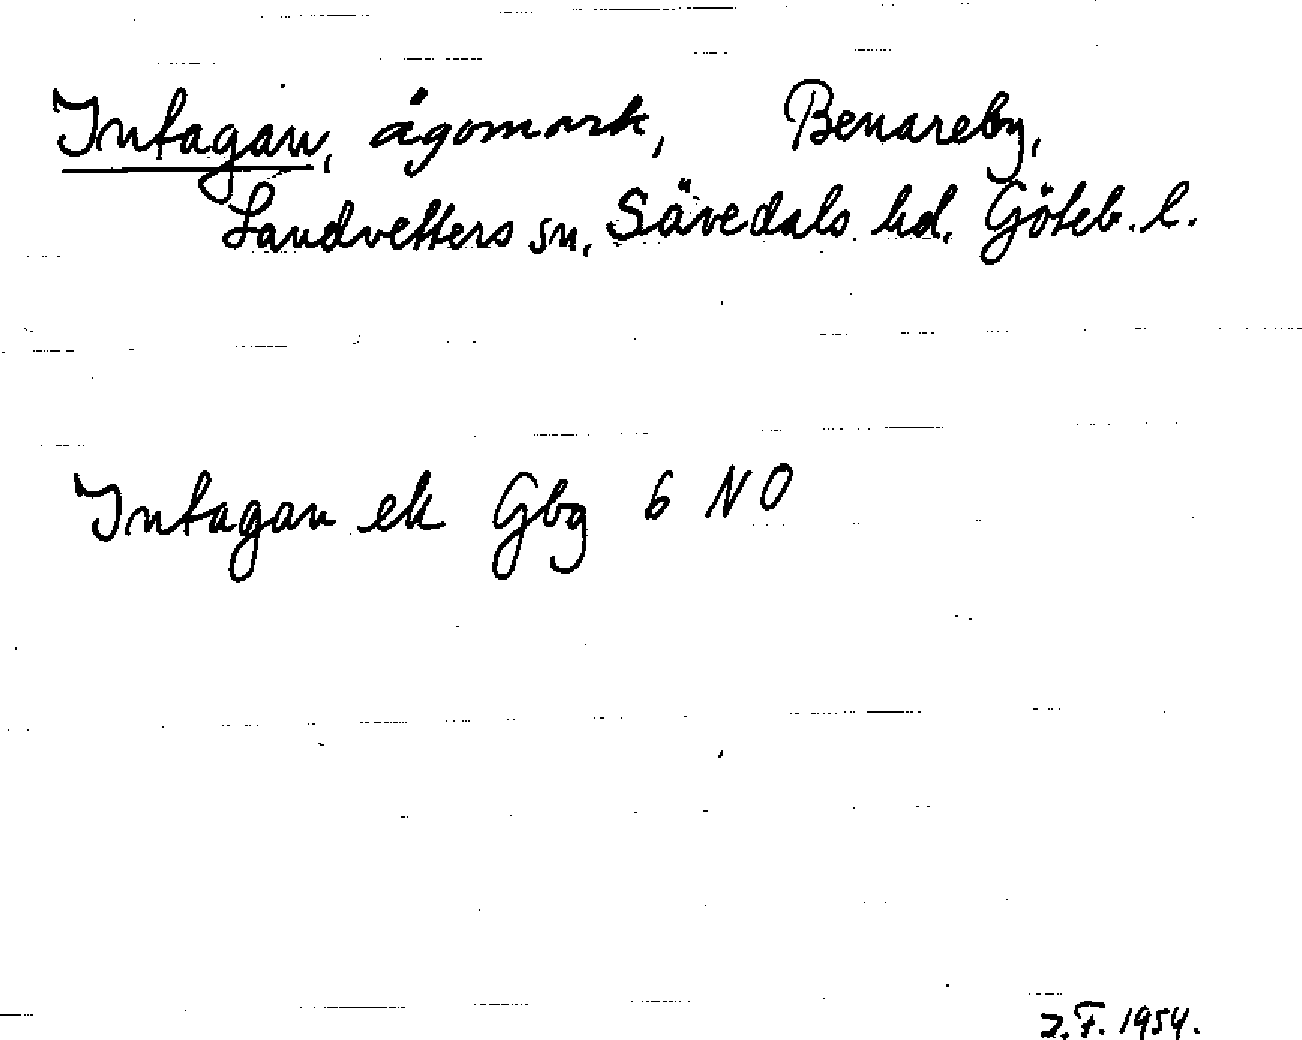 Intagan, ägomark, Benareby,
Landvetters sn. Sävedals hd. Göteb. l.
Intagan ek Gbg 6 NO
J.F. 1954.